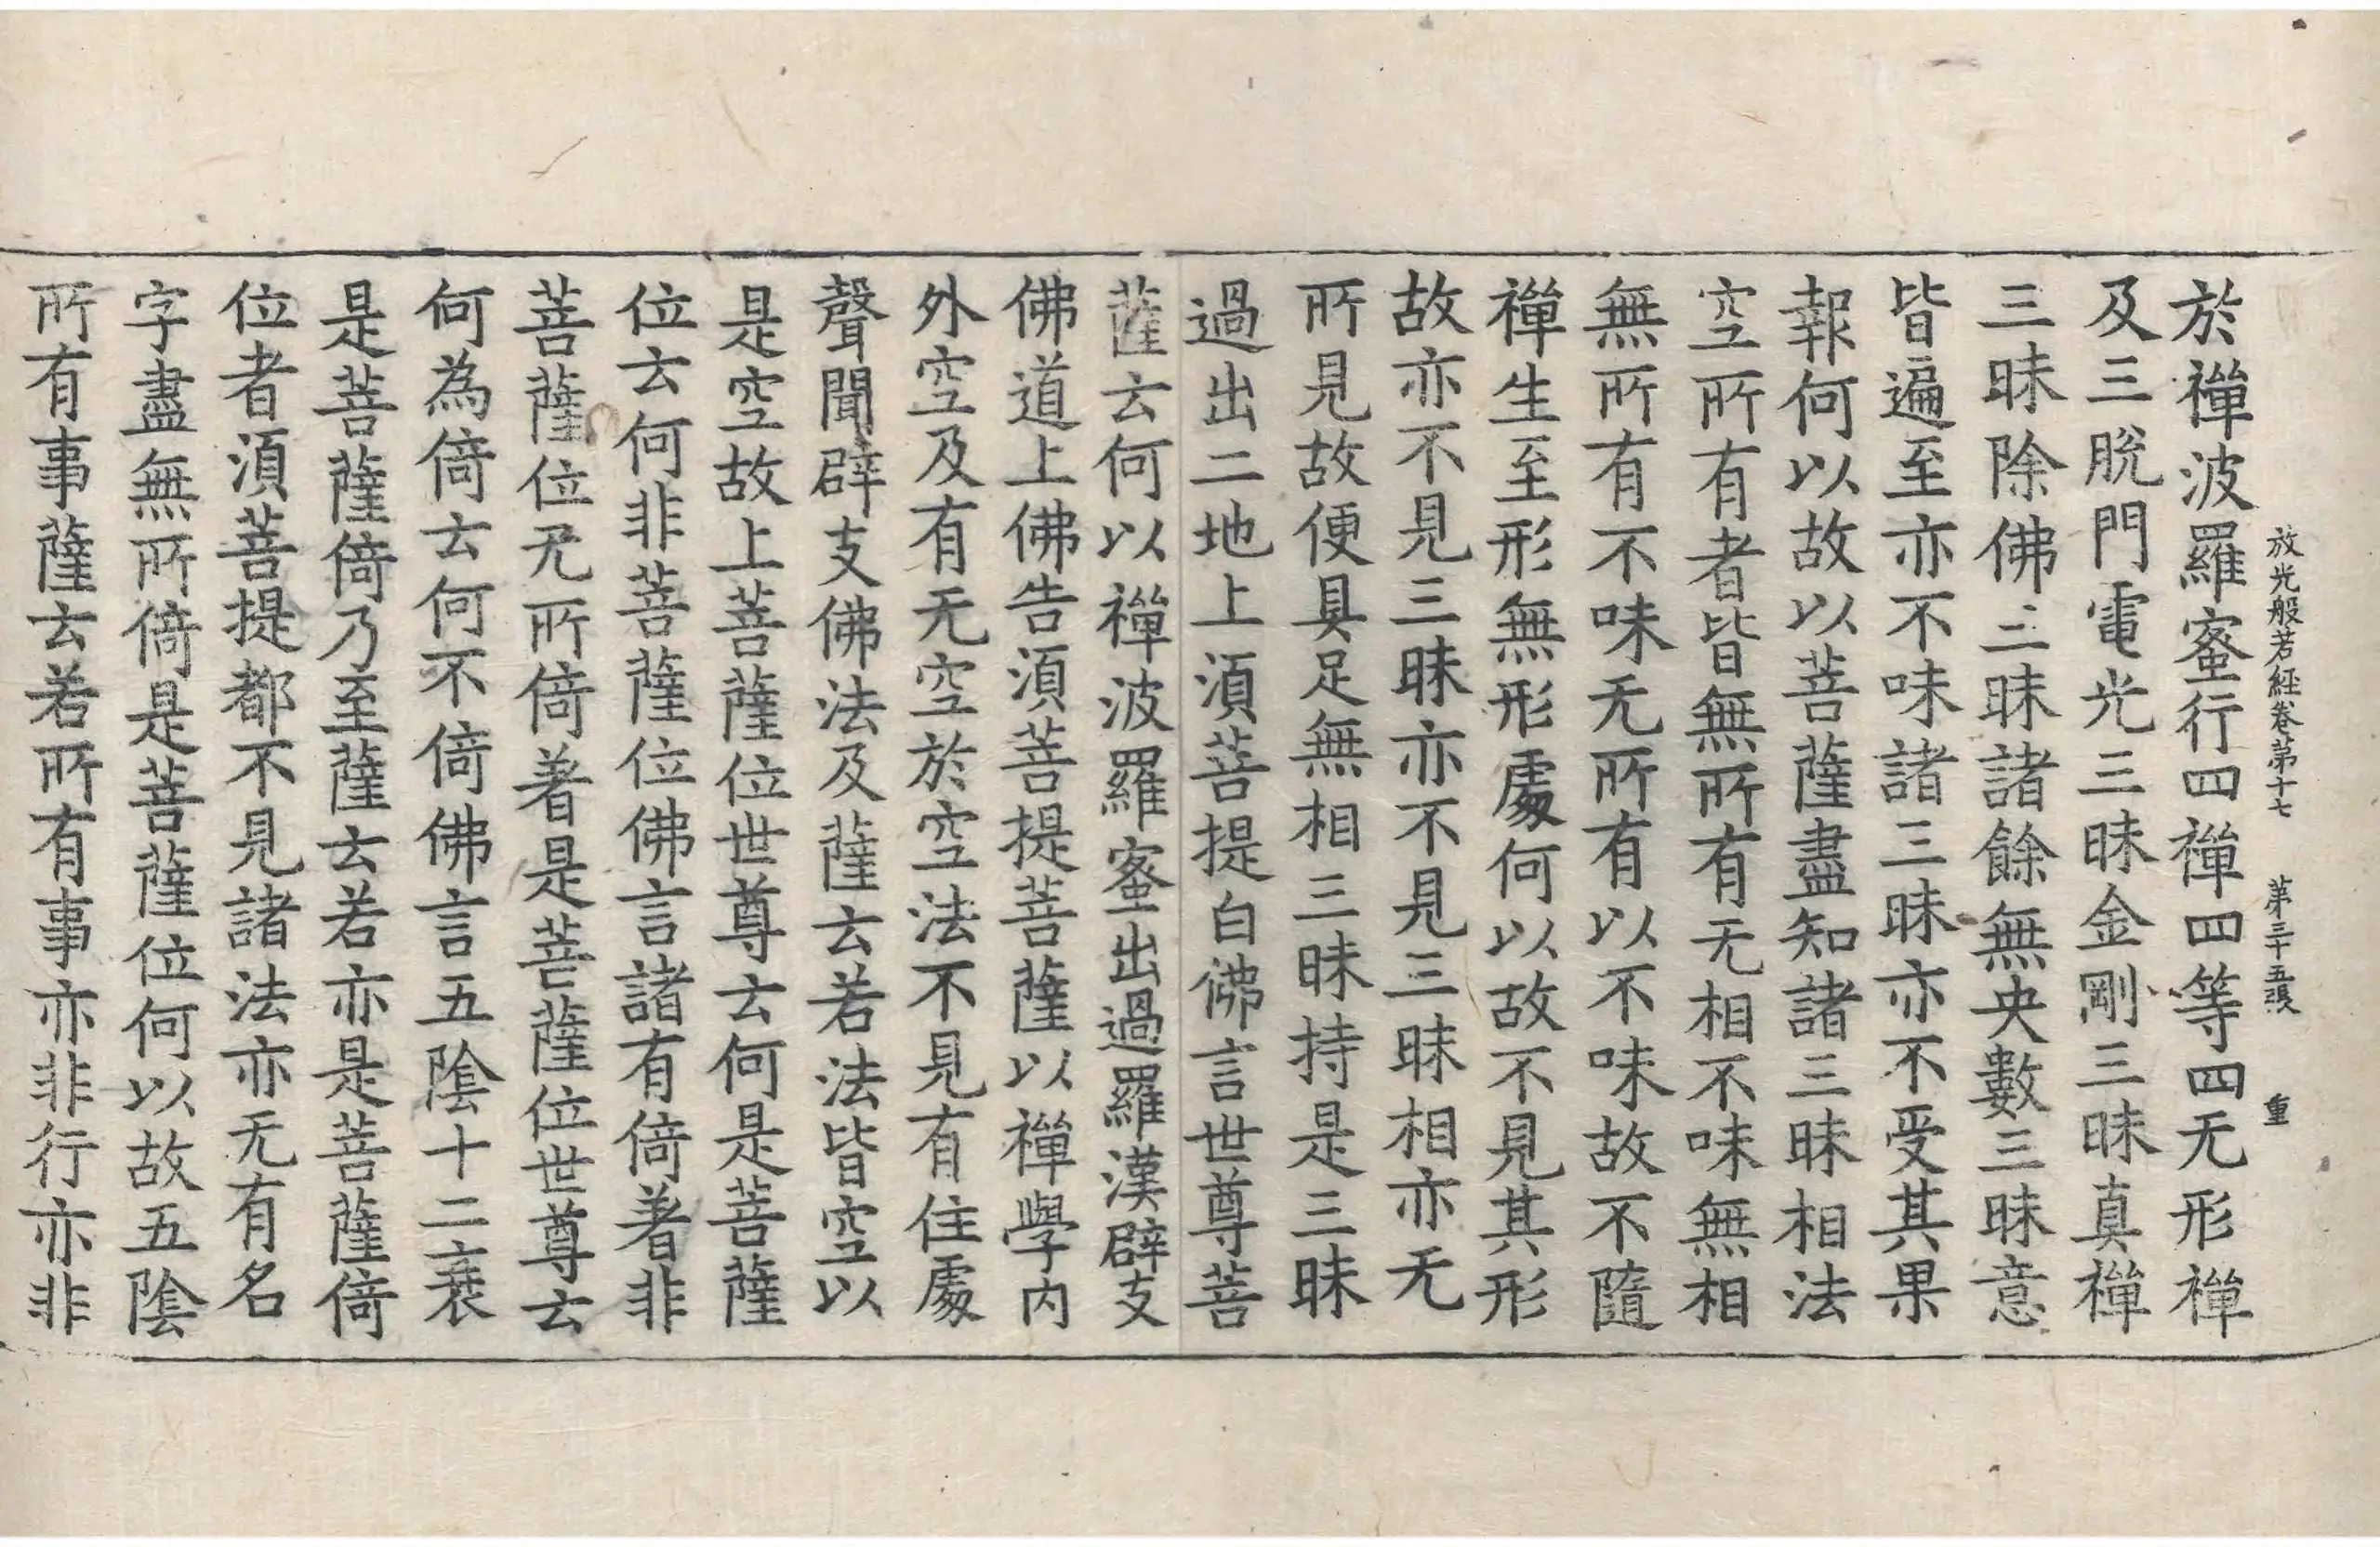 放光般若經卷第十七 第三十五張 重
於禪波羅蜜行四禪四等四无形禪
及三脫門電光三昧金剛三昧真禪
三昧除佛三昧諸餘無央數三昧意
皆遍至亦不味諸三昧亦不受其果
報何以故以菩薩盡知諸三昧相法
空所有者皆無所有无相不味無相
無所有不味无所有以不味故不隨
禪生至形無形處何以故不見其形
故亦不見三昧亦不見三昧相亦无
所見故便具足無相三昧持是三昧
過出二地上須菩提白佛言世尊菩
薩云何以禪波羅蜜出過羅漢辟支
佛道上佛告須菩提菩薩以禪學內
外空及有无空於空法不見有住處
聲聞辟支佛法及薩云若法皆空以
是空故上菩薩位世尊云何是菩薩
位云何非菩薩位佛言諸有倚著非
菩薩位无所倚著是菩薩位世尊云
何為倚云何不倚佛言五陰十二衰
是菩薩倚乃至薩云若亦是菩薩倚
位者須菩提都不見諸法亦无有名
字盡無所倚是菩薩位何以故五陰
所有事薩云若所有事亦非行亦非